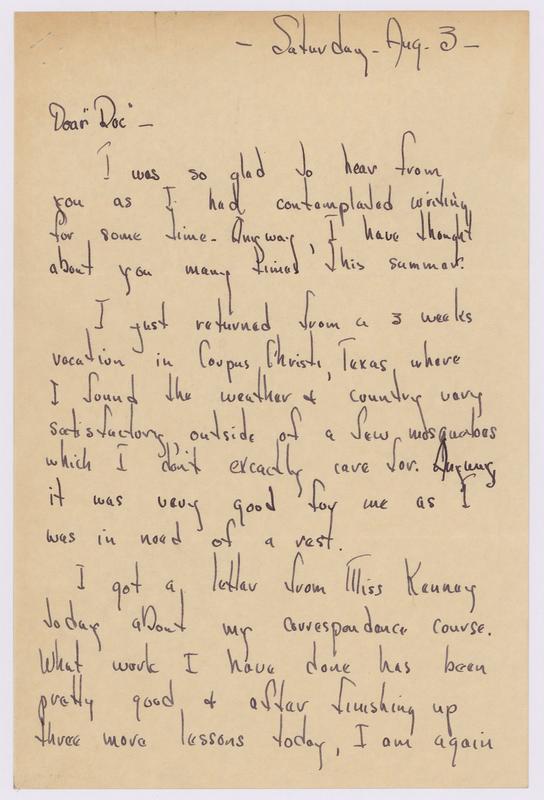 - Saturday - Aug - 3 -
Dear "Doc" -
I was so glad to hear from
you as I had contemplated writing
for some time - Anyway, I have thought
about you many times this summer.
I just returned from a 3 weeks
vacation in Corpus Christi, Texas, where
I found the weather & country very
satisfactory, outside of a few mosquatoes
which I don't excactly care for. Anyway
it was very good for me as I
was in need of a rest.
I got a letter from Miss Kenney
today about my correspondence course.
What work I have done has been
pretty good & after finishing up
three more lessons today, I am again